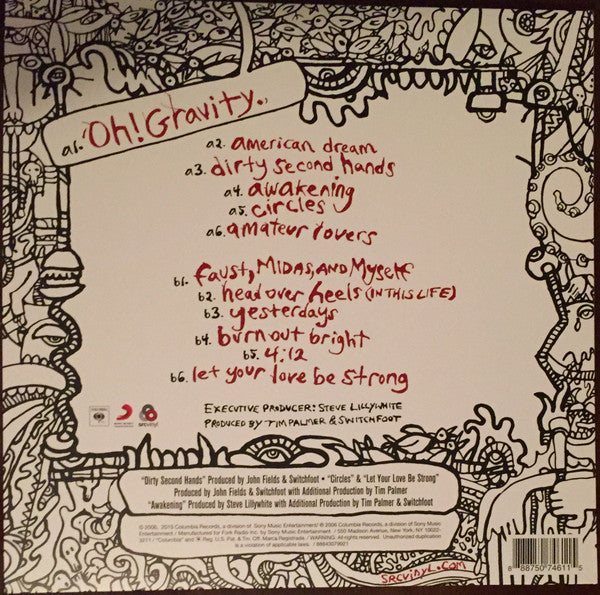 a1. "Oh! Gravity."
a2. american dream
a3. dirty second hands
a4. awakening
a5. circles
a6. amateur lovers
b1. faust, MIDAS, AND Myself
b2. head over heels (IN THIS LIFE)
b3. yesterdays
b4. burn out bright
b5. 4:12
b6. let your love be strong
EXECUTIVE PRODUCER: STEVE LILLYWHITE
PRODUCED BY TIM PALMER & SWITCHFOOT
"Dirty Second Hands" Produced by John Fields & Switchfoot • "Circles" & "Let Your Love Be Strong"
Produced by John Fields & Switchfoot with Additional Production by Tim Palmer
"Awakening" Produced by Steve Lillywhite with Additional Production by Tim Palmer & Switchfoot
© 2006, 2015 Columbia Records, a division of Sony Music Entertainment/ ℗ 2006 Columbia Records, a division of Sony Music
Entertainment / Manufactured for Folk Radio Inc. by Sony Music Entertainment / 550 Madison Avenue, New York, NY 10022-
3211 / "Columbia" and Reg. U.S. Pat. & Tm. Off. Marca Registrada. / WARNING: All Rights Reserved. Unauthorized duplication
is a violation of applicable laws. / 88843079921
SRCVINYL.COM
8 88750 74611 5
srcvinyl